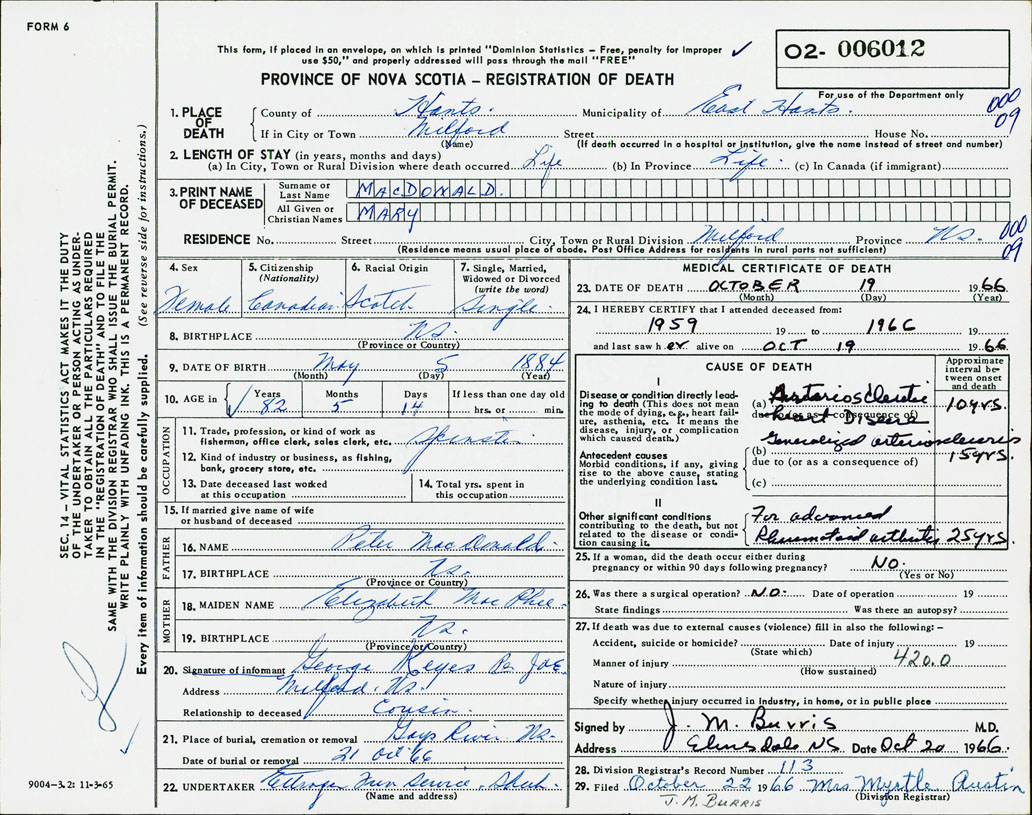 FORM 6
This form, if placed in an envelope, on which is printed "Dominion Statistics – Free, penalty for improper
use $50," and properly addressed will pass through the mail "FREE"
02- 006012
PROVINCE OF NOVA SCOTIA – REGISTRATION OF DEATH
For use of the Department only
1. PLACE OF DEATH
County of Hants. Municipality of East Hants. 000 09
If in City or Town Milford Street House No.
(Name) (If death occurred in a hospital or institution, give the name instead of street and number)
2. LENGTH OF STAY (in years, months and days)
(a) In City, Town or Rural Division where death occurred Life (b) In Province Life. (c) In Canada (if immigrant)
3. PRINT NAME OF DECEASED
Surname or Last Name MACDONALD.
All Given or Christian Names MARY
RESIDENCE No. Street City, Town or Rural Division Milford Province NS. 000 09
(Residence means usual place of abode. Post Office Address for residents in rural parts not sufficient)
4. Sex Female
5. Citizenship (Nationality) Canadian
6. Racial Origin Scotch
7. Single, Married, Widowed or Divorced (write the word) Single
8. BIRTHPLACE NS.
(Province or Country)
9. DATE OF BIRTH May 5 1884
(Month) (Day) (Year)
10. AGE in Years 82 Months 5 Days 14 If less than one day old hrs. or min.
OCCUPATION
11. Trade, profession, or kind of work as fisherman, office clerk, sales clerk, etc. Spinster
12. Kind of industry or business, as fishing, bank, grocery store, etc.
13. Date deceased last worked at this occupation
14. Total yrs. spent in this occupation
15. If married give name of wife or husband of deceased
FATHER
16. NAME Peter MacDonald.
17. BIRTHPLACE NS.
(Province or Country)
MOTHER
18. MAIDEN NAME Elizabeth Mac Phee
19. BIRTHPLACE NS.
(Province or Country)
20. Signature of informant George Keyes Per JOE.
Address Milford. NS.
Relationship to deceased Cousin.
21. Place of burial, cremation or removal Gays River NS.
Date of burial or removal 21 Oct 66
22. UNDERTAKER Ettinger Fun Service
(Name and address)
MEDICAL CERTIFICATE OF DEATH
23. DATE OF DEATH OCTOBER 19 1966
(Month) (Day) (Year)
24. I HEREBY CERTIFY that I attended deceased from:
1959 19 to 1966 19
and last saw her alive on OCT 19 1966
CAUSE OF DEATH
Approximate interval between onset and death
I
Disease or condition directly leading to death (This does not mean the mode of dying, e.g., heart failure, asthenia, etc. It means the disease, injury, or complication which caused death.)
(a) Arteriosclerotic 10 yrs.
due to (or as a consequence of)
Heart Disease
Generalized arteriosclerosis
Antecedent causes
Morbid conditions, if any, giving rise to the above cause, stating the underlying condition last.
(b) 15 yrs.
due to (or as a consequence of)
(c)
II
Other significant conditions contributing to the death, but not related to the disease or condition causing it.
Far advanced
Rheumatoid arthritis 25 yrs.
25. If a woman, did the death occur either during pregnancy or within 90 days following pregnancy? NO.
(Yes or No)
26. Was there a surgical operation? NO. Date of operation 19
State findings Was there an autopsy?
27. If death was due to external causes (violence) fill in also the following: –
Accident, suicide or homicide? Date of injury 19
(State which)
Manner of injury 420.0
(How sustained)
Nature of injury
Specify whether injury occurred in Industry, in home, or in public place
Signed by J. M. Burris M.D.
Address Elmsdale NS Date Oct 20 1966
28. Division Registrar's Record Number 113
29. Filed October 22 1966 Mrs Myrtle Austin
J. M. BURRIS (Division Registrar)
SEC. 14 – VITAL STATISTICS ACT MAKES IT THE DUTY
OF THE UNDERTAKER OR PERSON ACTING AS UNDERTAKER
TO OBTAIN ALL THE PARTICULARS REQUIRED
IN THE "REGISTRATION OF DEATH" AND TO FILE THE
SAME WITH THE DIVISION REGISTRAR WHO SHALL ISSUE THE BURIAL PERMIT.
WRITE PLAINLY WITH UNFADING INK. THIS IS A PERMANENT RECORD.
Every item of information should be carefully supplied. (See reverse side for instructions.)
9004–3.2: 11-3-65